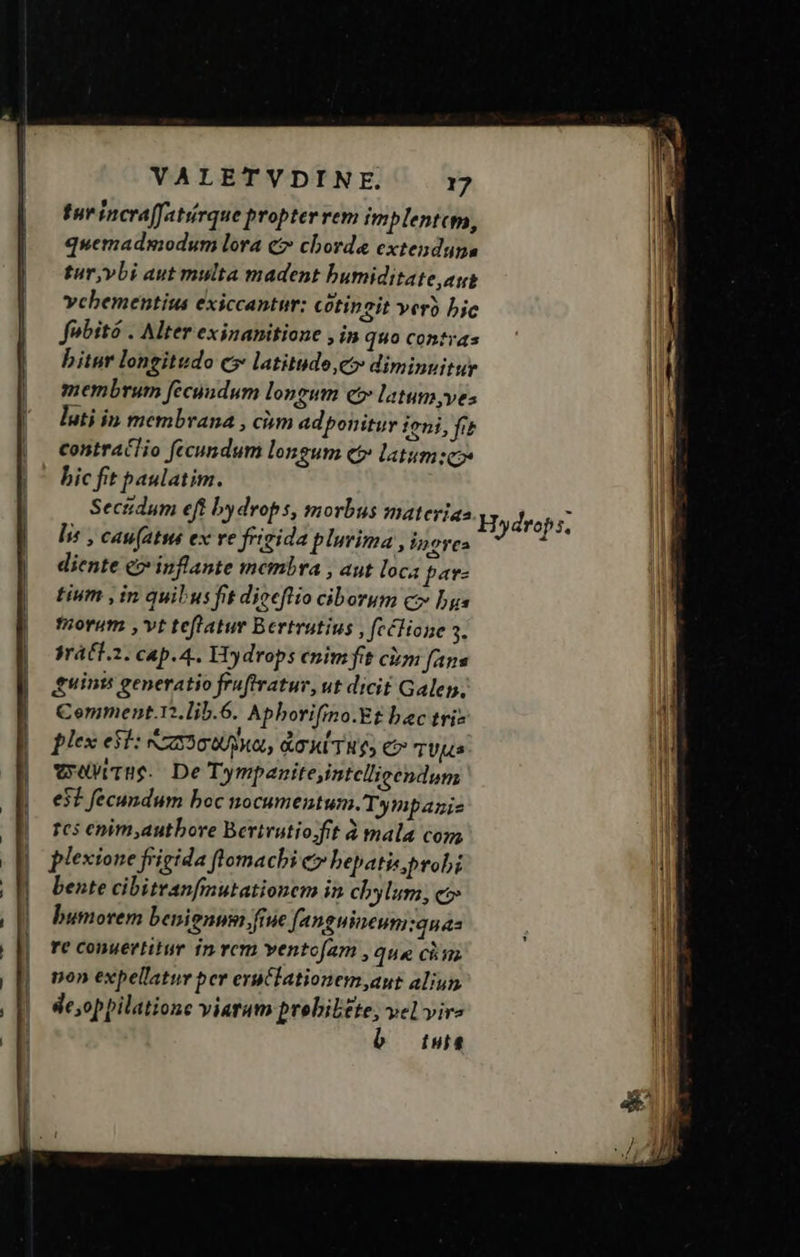 VALETVDINE. 17
tur incraſſatúrque propter rem implentem,
quemadmodum lora & chordæ extendun⸗
tur, vbi aut multa madent humiditate, aut
vehementius exiccantur: cõtingit verò hic
ſubitó. Alter exinanitione, in quo contra⸗
hitur longitudo & latitudo, & diminuitur
membrum ſecundum longum & latum, ve⸗
luti in membrana, cùm adponitur igni, fit
contractio ſecundum longum & latum: &
hic fit paulatim.
Secũdum eſt hydrops, morbus materia⸗
Hydrops.
lis, cauſatus ex re frigida plurima, ingre⸗
diente & inflante membra, aut loca par⸗
tium, in quibus fit digeſtio ciborum & hu⸗
morum, vt teſtatur Bertrutius, ſectione 3.
tract.2. cap.4. Hydrops enim fit cùm ſan⸗
guinis generatio fruſtratur, ut dicit Galen.
Comment.12.lib.6. Aphoriſmo. Et hæc tri⸗
plex est: ἀσκίτης, & τυμ⸗
πανίτης. De Tympanite, intelligendum
est ſecundum hoc nocumentum. Tympani⸗
tes enim, authore Bertrutio, fit à mala com
plexione frigida ſtomachi & hepatis, prohi
bente cibi tranſmutationem in chylum, &
humorem benignum, ſiue ſanguineum: qua⸗
re conuertitur in rem ventoſam, quæ cùm
non expellatur per eructationem, aut aliun
de, oppilatione viarum prohibẽte, vel vir⸗
b tute